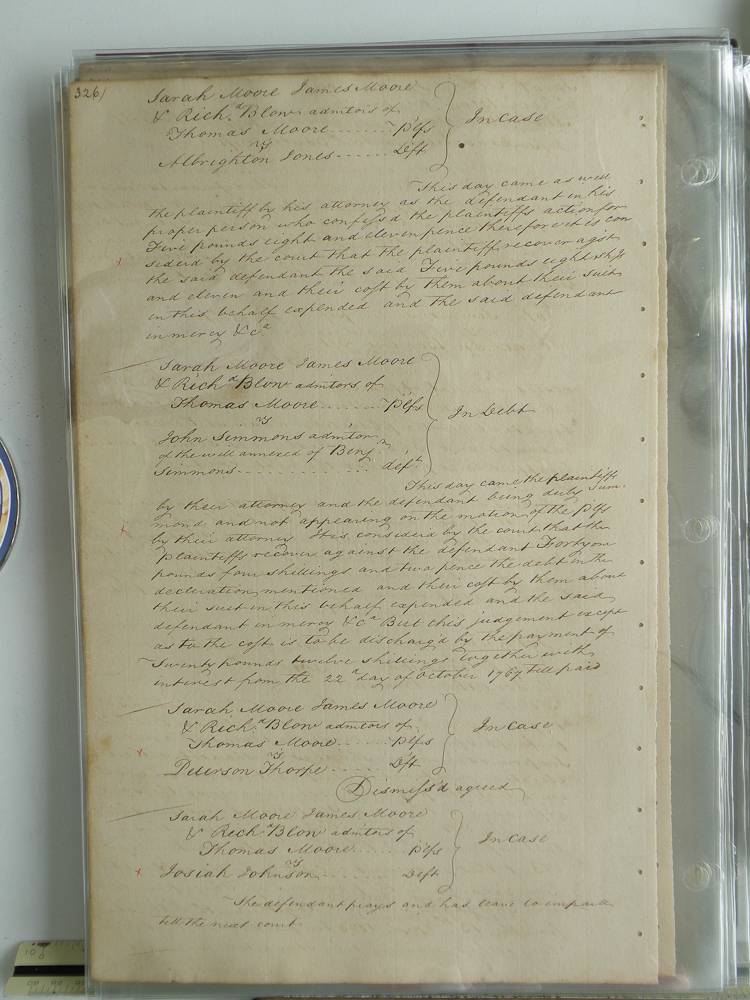 326/
Sarah Moore James Moore
& Rich.d Blow admtors of
Thomas Moore ........ Plfs
vs
Albrighton Jones ...... Deft
In Case
This day came as well
the plaintiff by his attorney as the defendant in his
proper person who confess'd the plaintiffs action for
Five pounds eight and eleven pence therefore it is con
siderd by the court that the plaintiff recover agst
the said defendant the said Five pounds eight shgs
and eleven and their cost by them about their suit
in this behalf expended and the said defendant
in mercy &c.a
Sarah Moore James Moore
& Rich.d Blow admtors of
Thomas Moore ....... Plfs
vs
John Simmons admtor
of the will annexed of Benj
Simmons ............ deft.
In Debt
This day came the plaintiffs
by their attorney and the defendant being duly sum.
mond and not appearing on the motion of the Plfs
by their attorney It is considerd by the court that the
plaintiffs recover against the defendant Forty one
pounds four shillings and two pence the debt in the
declaration mentioned and their cost by them about
their suit in this behalf expended and the said
defendant in mercy &c.a But this judgement except
as to the cost is to be discharg'd by the payment of
Twenty pounds twelve shillings together with
interest from the 22.d day of October 1767 till paid
Sarah Moore James Moore
& Rich.d Blow admtors of
Thomas Moore ...... Plfs
vs
Peterson Thorpe ...... Deft
In Case
Dismiss'd agreed
Sarah Moore James Moore
& Rich.d Blow admtors of
Thomas Moore ....... Plfs
vs
Josiah Johnson ........ Deft
In Case
The defendant prays and has leave to imparle
till the next court